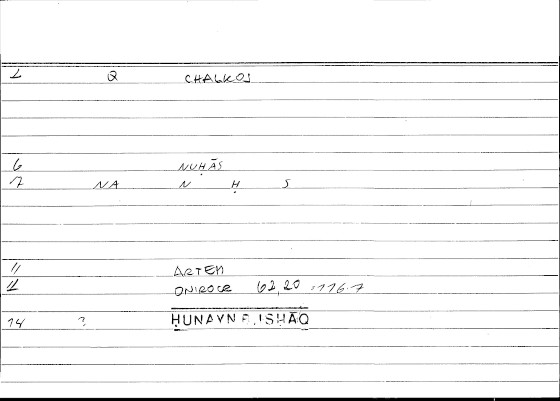 1 Q CHALKOS
6 NUḤĀS
7 NA N Ḥ S
11 ARTEM
12 ONIROCR 62,20 = 116.7
14 ? ḤUNAYN B. ISḤĀQ